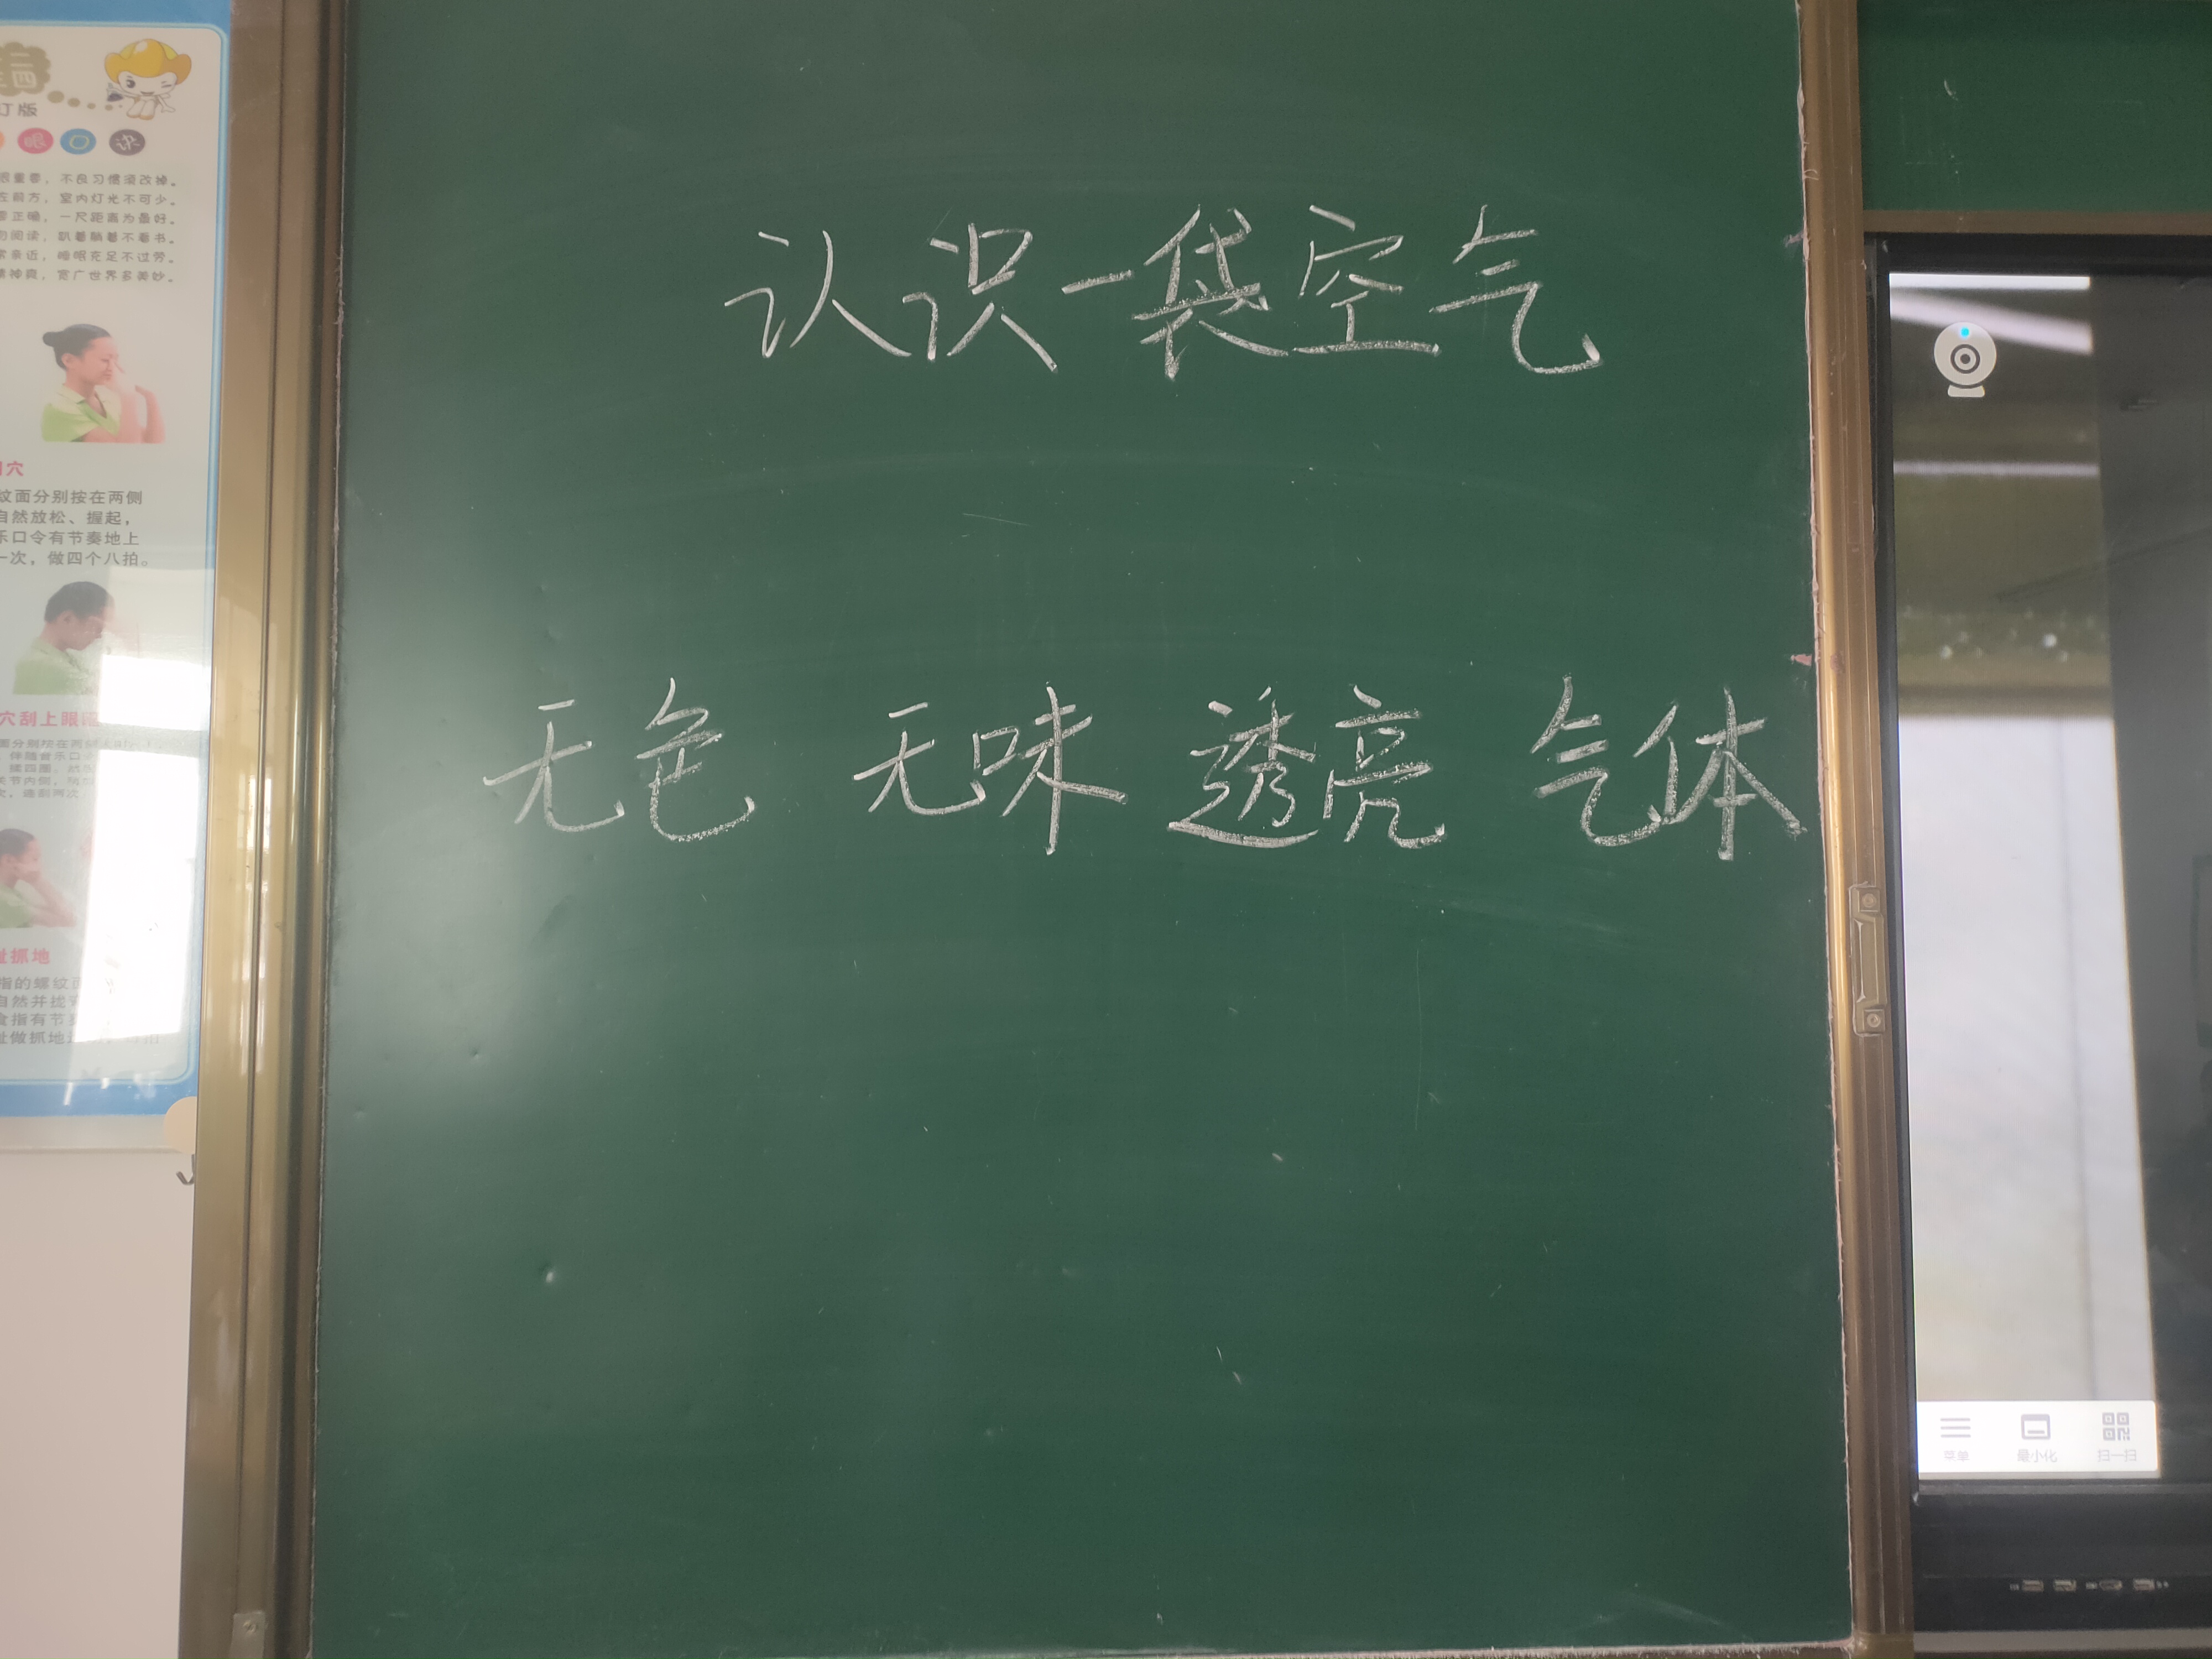 认识一袋空气
无色 无味 透亮 气体
订版
眼 口 诀
眼重要，不良习惯须改掉。
左前方，室内灯光不可少。
要正确，一尺距离为最好。
勿阅读，趴着躺着不看书。
常亲近，睡眠充足不过劳。
精神爽，宽广世界多美妙。
穴
纹面分别按在两侧
自然放松、握起，
乐口令有节奏地上
一次，做四个八拍。
穴刮上眼眶
趾抓地
指的螺纹面
自然并找
食指有节奏
趾做抓地
菜单 最小化 扫一扫